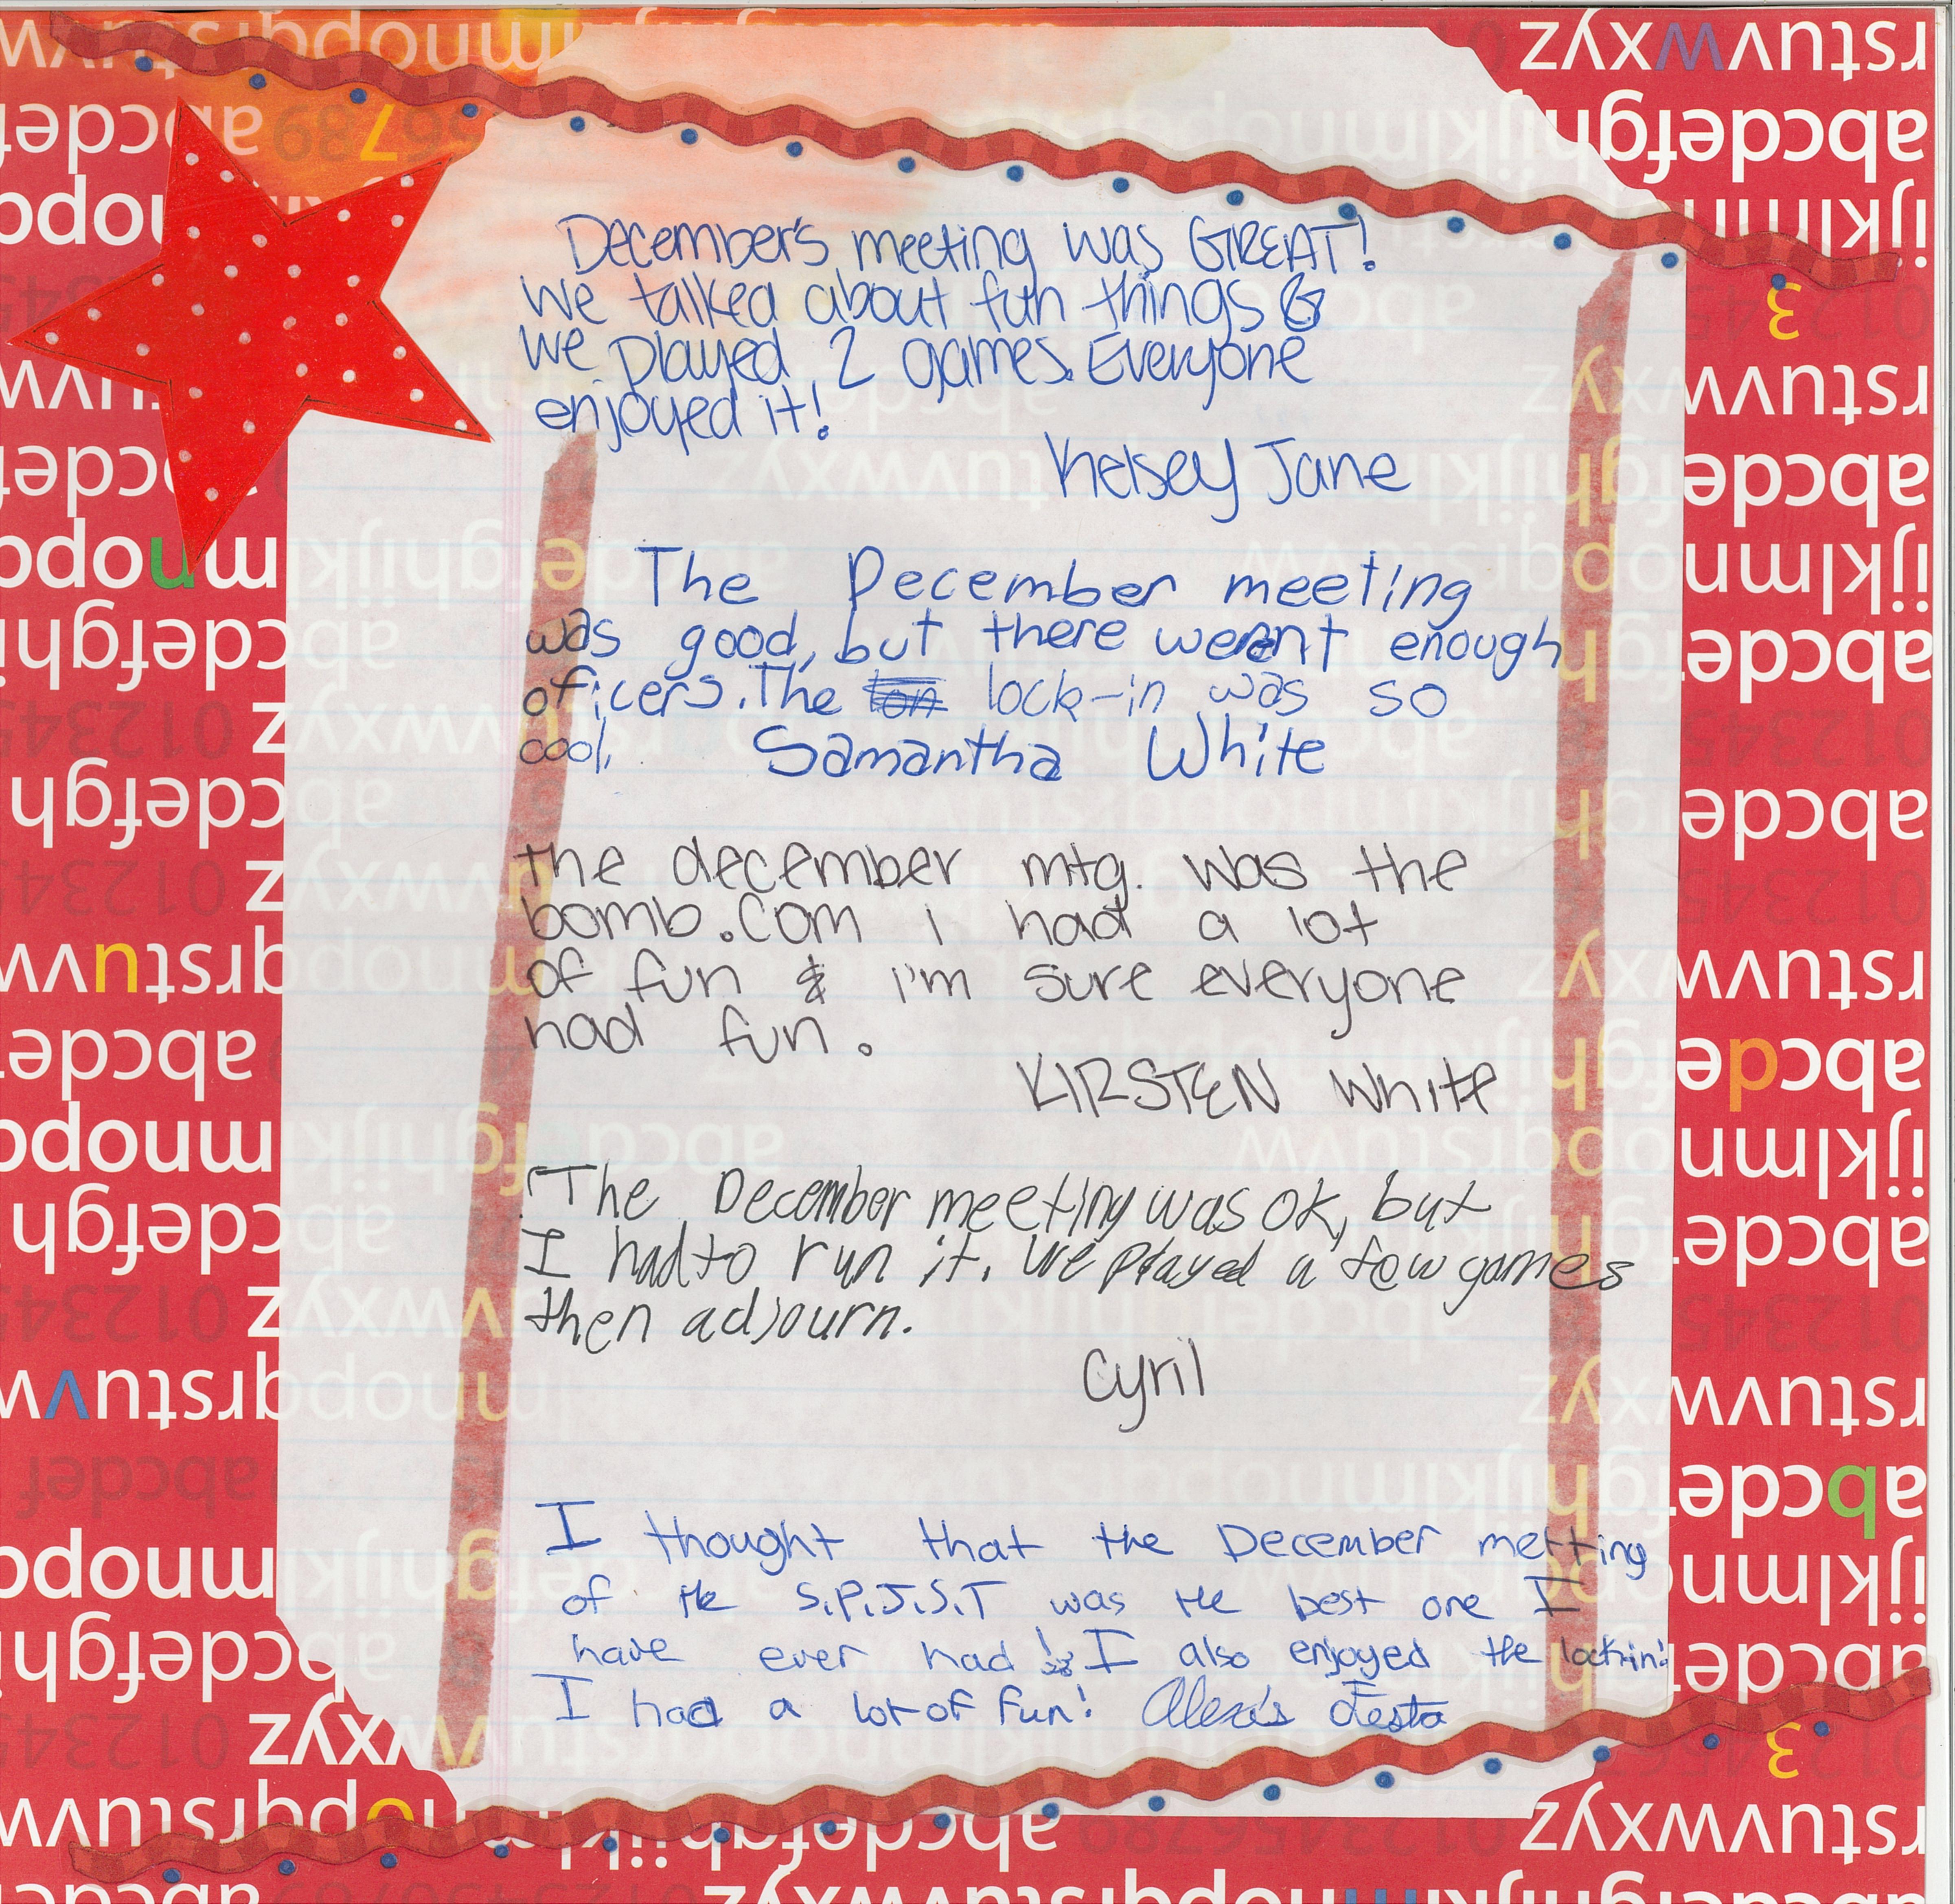 December's meeting was GREAT!
We talked about fun things &
we played 2 games. Everyone
enjoyed it!
Kelsey Jane
The December meeting
was good, but there werent enough
oficers. The lock-in was so
cool.
Samantha White
the december mtg. was the
bomb.com i had a lot
of fun & i'm sure everyone
had fun.
KIRSTEN White
The December meeting was ok, but
I had to run it. We played a few games
then adjourn.
Cyril
I thought that the December metting
of the S.P.J.S.T was the best one I
have ever had! I also enjoyed the lock-in!
I had a lot of fun! Alexis Festa